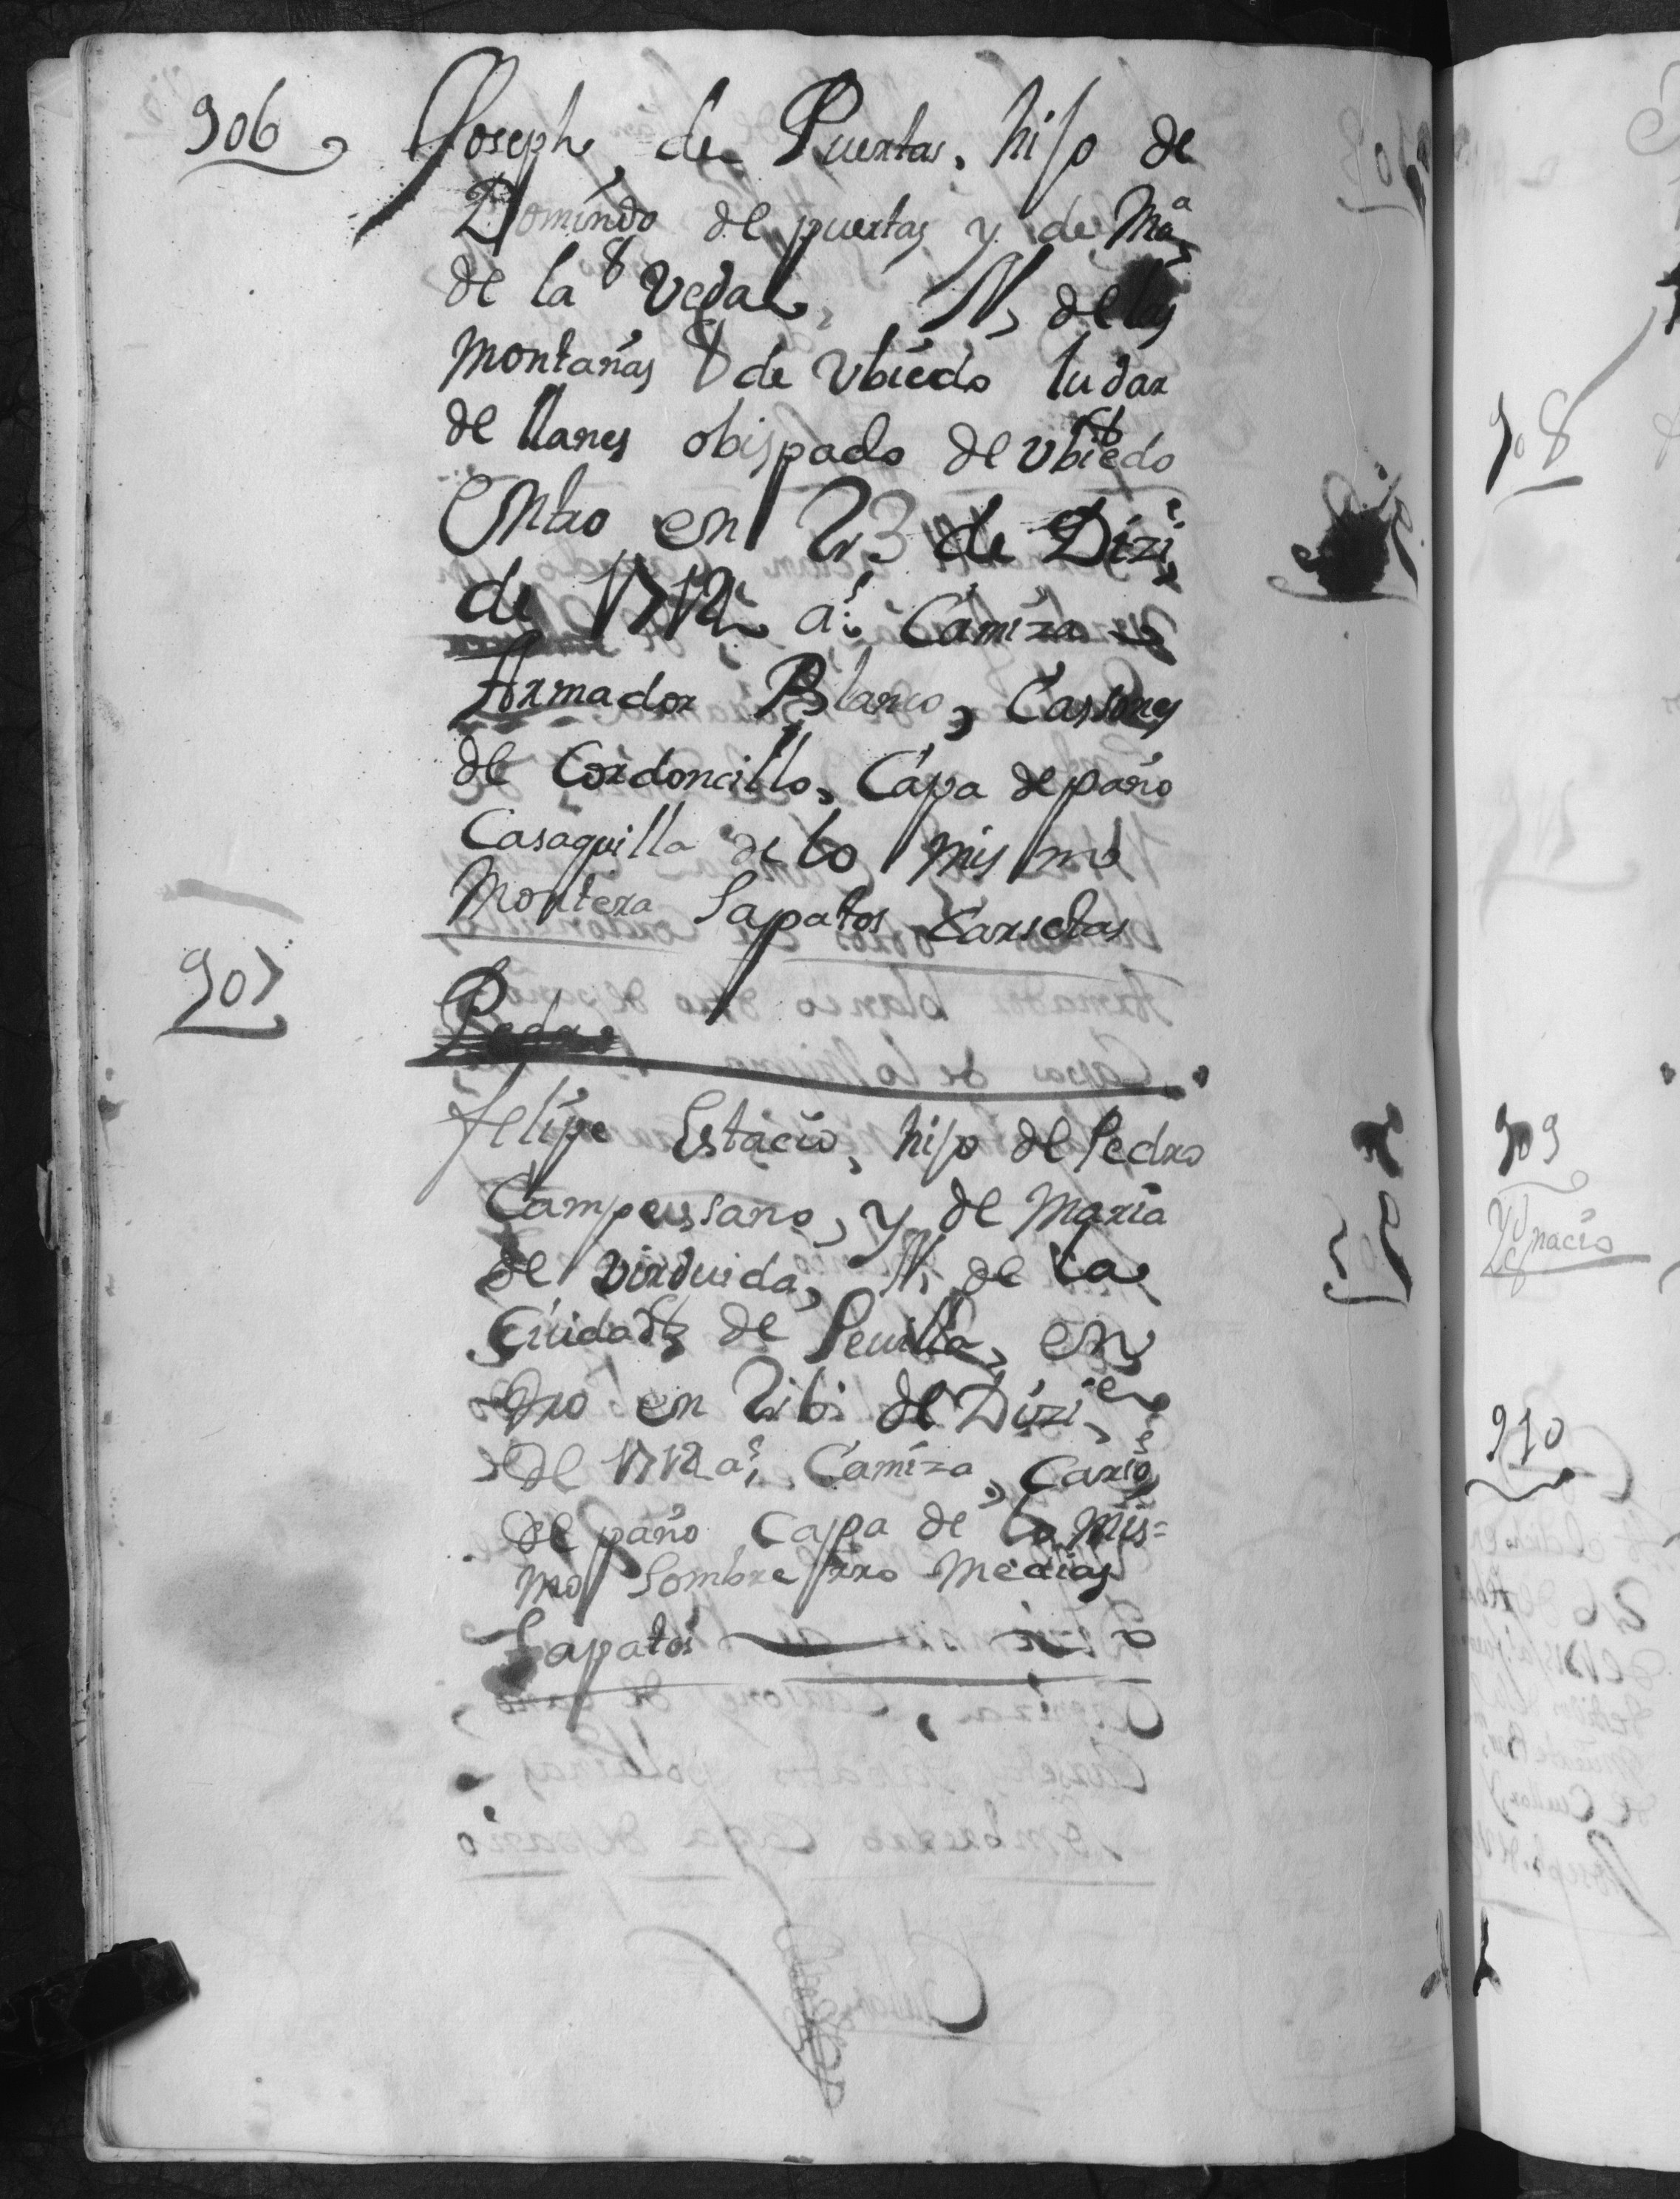 906 Joseph, de Puertas, hijo de
Domingo de puertas y de Ma
de la Vega, N, de las
Montañas de Ubiedo lugar
de llanes obispado de Ubiedo
Entro en 23 de Dizi.e
de 1712 a.s Camiza
Armador Blanco, Cassones
de Cordoncillo, Capa de paño
Casaquilla de lo mismo
Montera Sapatos Carsetas
907
Pedro
felipe Estacio, hijo de Pedro
Campussano, y de Maria
de , N, de la
Ciuidad de Seuilla, en
tro en 26 de Dizi.e
de 1712 a.s, Camiza,
de paño Capa de lo mis=
mo Sombrerro Medias
Sapatos
908
909
Ygnacio
910